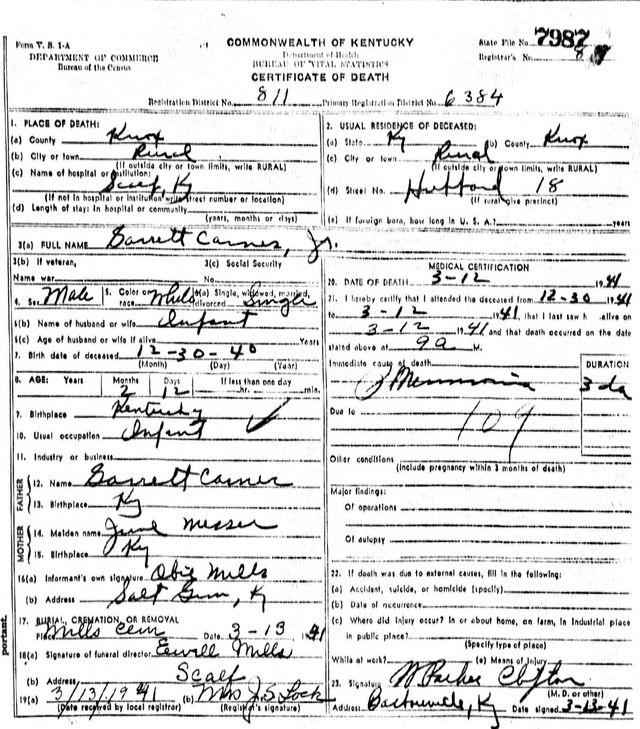 Form V. S. 1-A
DEPARTMENT OF COMMERCE
Bureau of the Census
COMMONWEALTH OF KENTUCKY
Department of Health
BUREAU OF VITAL STATISTICS
CERTIFICATE OF DEATH
State File No. 7987
Registrar's No. 8
Registration District No. 811 Primary Registration District No. 6384
1. PLACE OF DEATH:
(a) County Knox
(b) City or town Rural
(If outside city or town limits, write RURAL)
(c) Name of hospital or institution:
Scalf, Ky
(If not in hospital or institution write street number or location)
(d) Length of stay: In hospital or community
(years, months or days)
2. USUAL RESIDENCE OF DECEASED:
(a) State Ky (b) County Knox
(c) City or town Rural
(If outside city or town limits, write RURAL)
(d) Street No. 18
(If rural give precinct)
(e) If foreign born, how long in U. S. A.? years
3(a) FULL NAME Garrett Carnes, Jr.
3(b) If veteran,
Name war
3(c) Social Security
No.
4. Sex Male 5. Color or race White 6(a) Single, widowed, married, divorced Single
6(b) Name of husband or wife Infant
6(c) Age of husband or wife if alive Years
7. Birth date of deceased 12-30-40
(Month) (Day) (Year)
8. AGE: Years Months 2 Days 12 If less than one day hr. min.
9. Birthplace Kentucky
10. Usual occupation Infant
11. Industry or business
FATHER
12. Name Garrett Carnes
13. Birthplace Ky
MOTHER
14. Maiden name June Messer
15. Birthplace Ky
16(a) Informant's own signature Obie Mills
(b) Address Salt Gum, Ky
17. BURIAL, CREMATION, OR REMOVAL
Place Mills Cem Date 3-13 1941
18(a) Signature of funeral director Mills
(b) Address Scalf
19(a) 3/13/1941 (b) Mrs J. S. Lock
(Date received by local registrar) (Registrar's signature)
MEDICAL CERTIFICATION
20. DATE OF DEATH 3-12 1941
21. I hereby certify that I attended the deceased from 12-30 1941
to 3-12 1941, that I last saw h alive on
3-12 1941 and that death occurred on the date
stated above at 9a M.
Immediate cause of death
Pneumonia
DURATION
3 da
Due to 109
Other conditions
(Include pregnancy within 3 months of death)
Major findings:
Of operations
Of autopsy
22. If death was due to external causes, fill in the following:
(a) Accident, suicide, or homicide (specify)
(b) Date of occurrence
(c) Where did injury occur? In or about home, on farm, in industrial place
in public place?
(Specify type of place)
While at work? (e) Means of Injury
23. Signature W Parker Clifton
(M. D. or other)
Address Barbourville, Ky Date signed 3-13-41
portant.